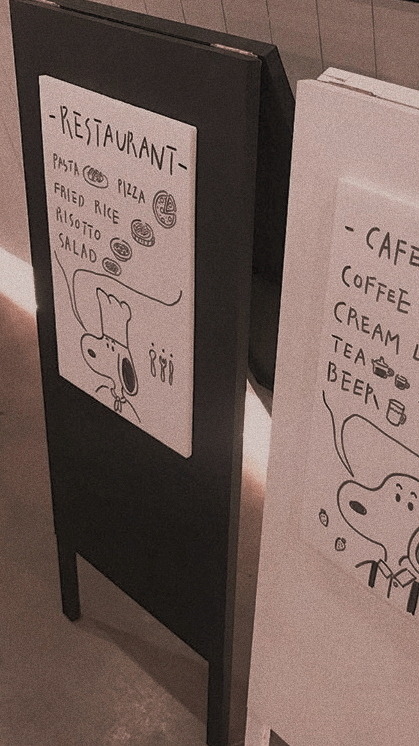 -RESTAURANT-
PASTA PIZZA
FRIED RICE
RISOTTO
SALAD
- CAFE
COFFEE
CREAM
TEA
BEER